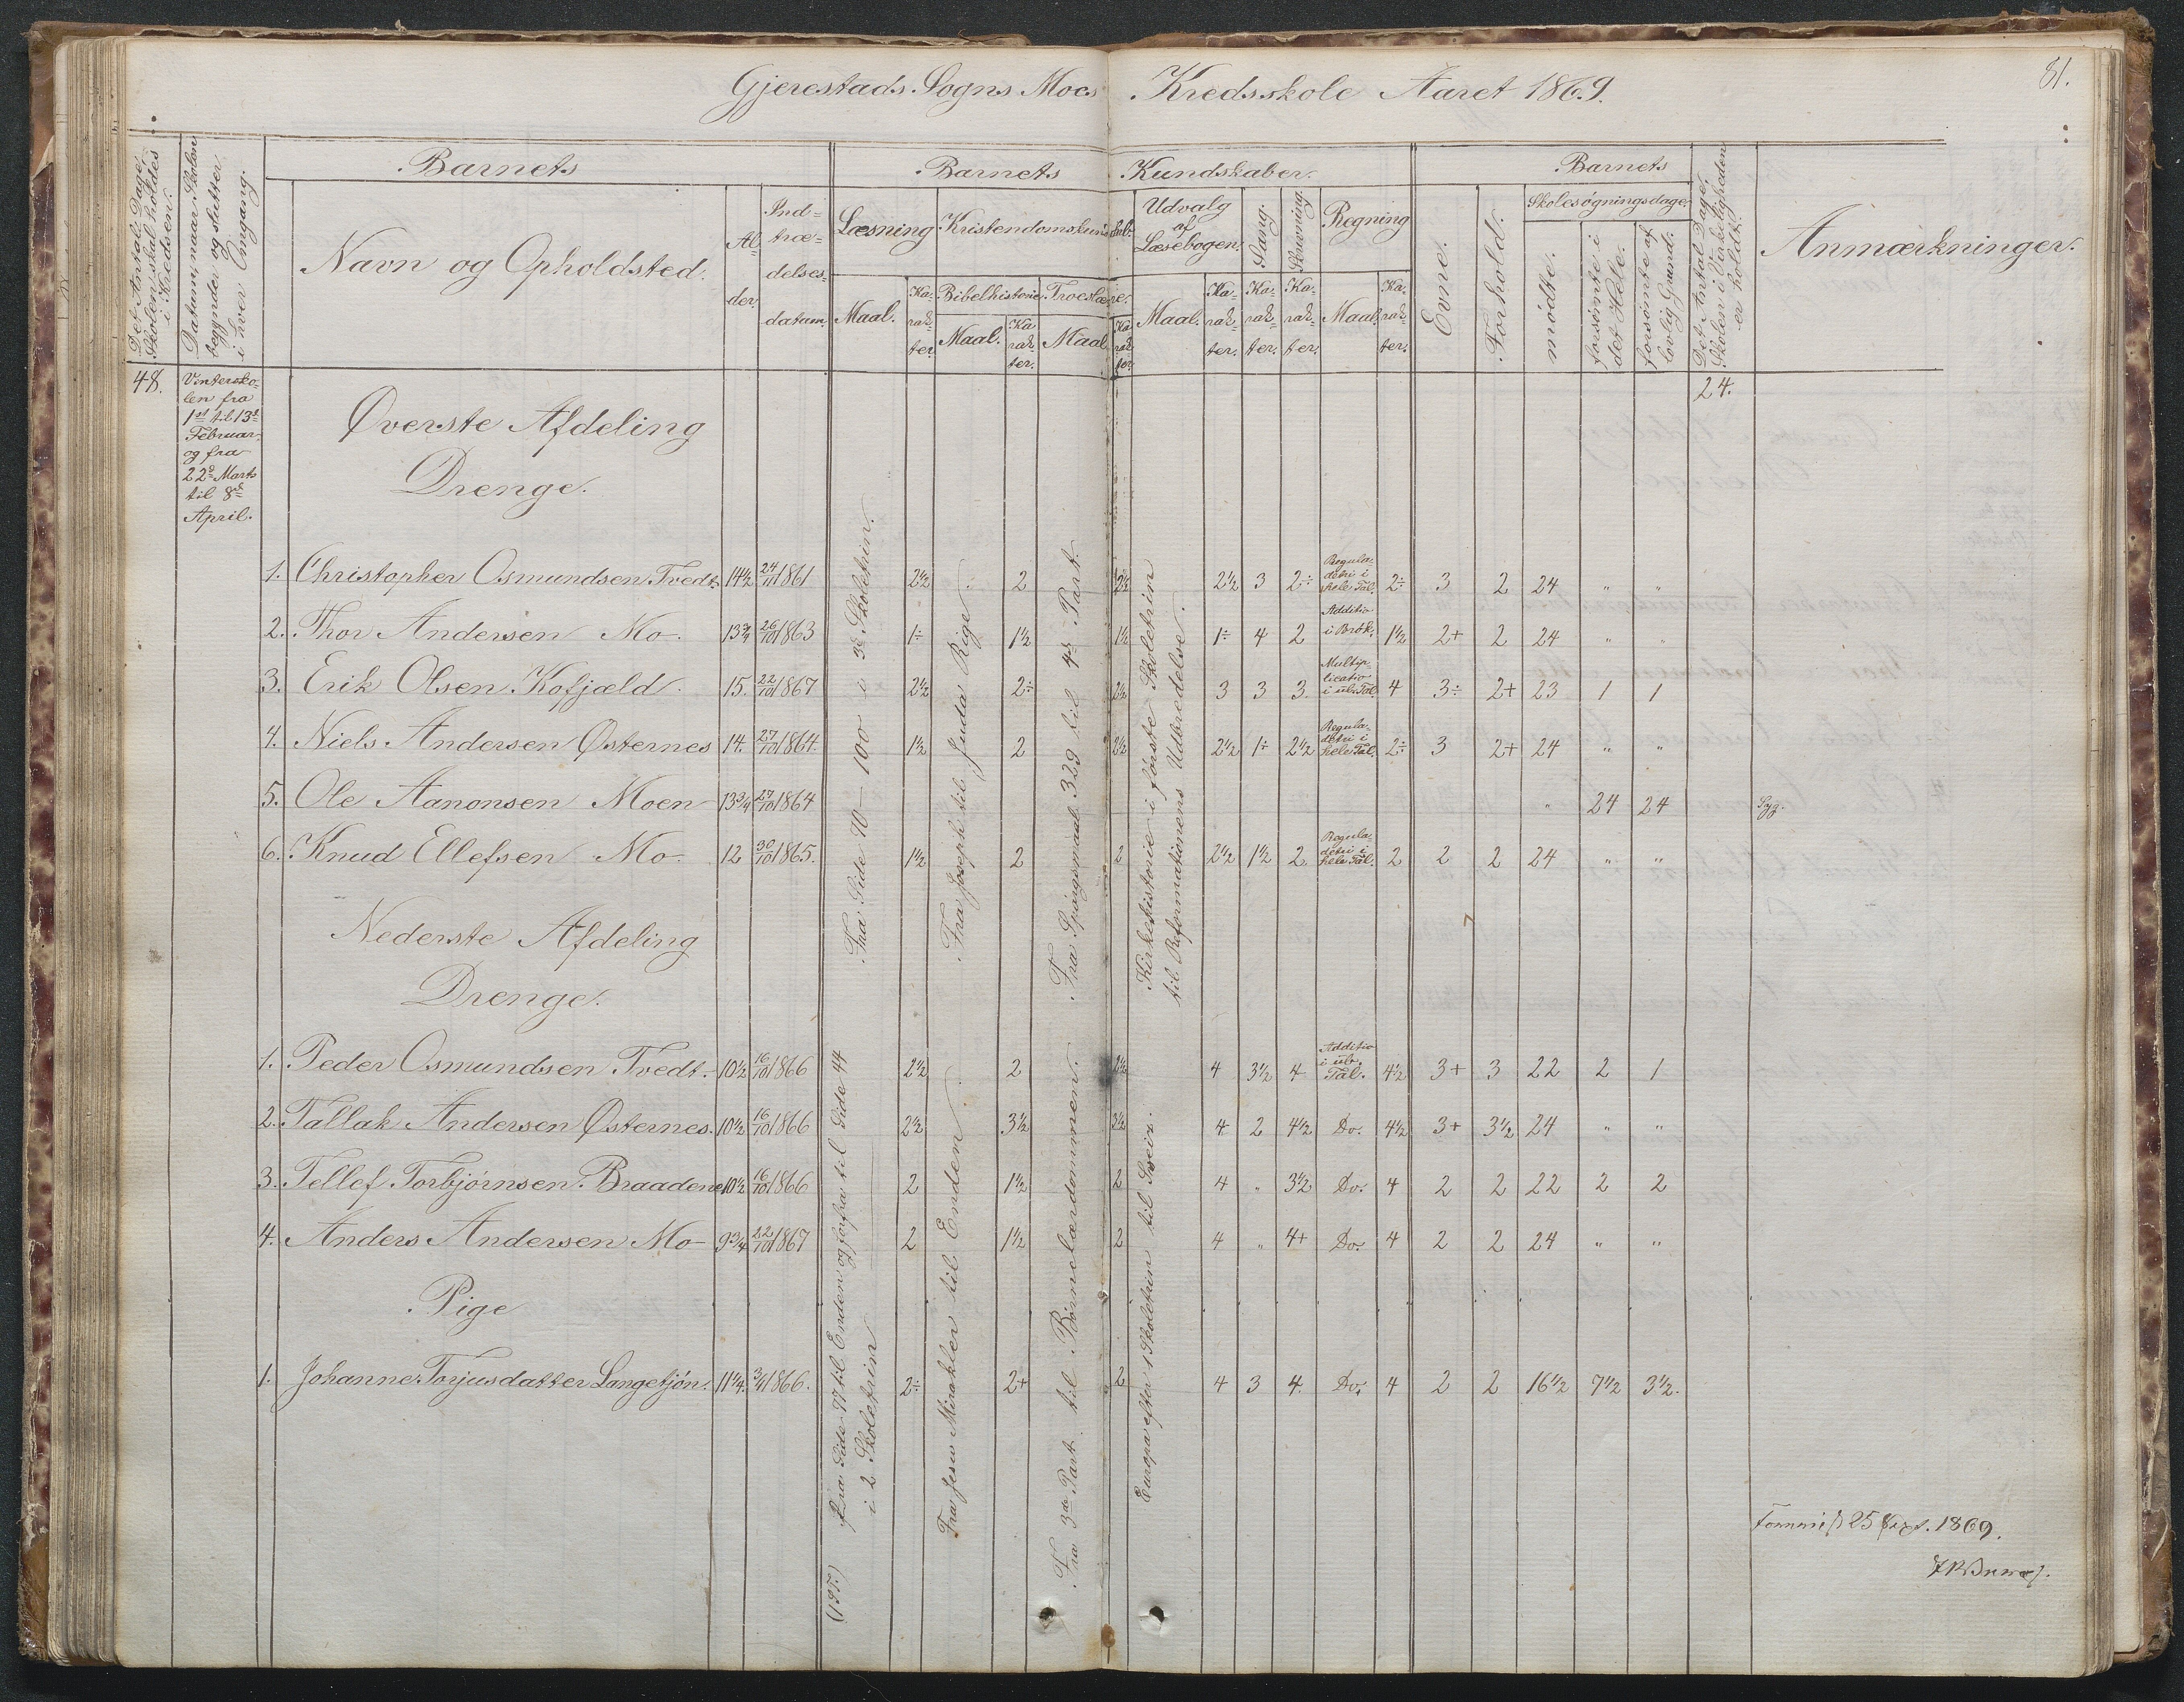 81.
Gjerestads Sogns Moes Kredsskole Aaret 1869.
Det Antal Dage, Skolen skal holdes i Kredsen.
Datum, naar Skolen begynder og slutter i hver Omgang.
Barnets
Navn og Opholdsted.
Alder.
Indtrædelsesdatum.
Barnets Kundskaber.
Læsning
Maal.
Karakter.
Kristendomskundskab.
Bibelhistorie.
Maal.
Karakter.
Troeslære.
Maal.
Karakter.
Udvalg af Læsebogen.
Maal.
Karakter.
Sang.
Karakter.
Skrivning.
Karakter.
Regning
Maal.
Karakter.
Barnets
Evne.
Forhold.
Skolesøgningsdage,
mødte.
forsømte i det Hele.
forsømte af lovlig Grund.
Det Antal Dage, Skolen i Virkeligheden er holdt.
Anmærkninger.
48. Vintersko- 24.
len fra
1st til 13d
Februar,
og fra
22d Marts
til 8d
April.
Øverste Afdeling
Drenge.
1. Christopher Osmundsen Tvedt. 14½ 24/11 1861 2½ 2 2½ 2½ 3 2÷ Reguladetri i hele Tal. 2÷ 3 2 24 " "
2. Thor Andersen Mo. 13¾ 26/10 1863 1÷ 1½ 1½ 1÷ 4 2 Additio i Brøk. 1½ 2+ 2 24 " "
3. Erik Olsen Kofjæld. 15. 22/10 1867 2½ 2÷ 2½ 3 3 3 Multiplicatio i ub. Tal. 4 3÷ 2+ 23 1 1
4. Niels Andersen Østernes 14. 27/10 1864. 1½ 2 2½ 2½ 1÷ 2½ Reguladetri i hele Tal. 2÷ 3 2+ 24 " "
5. Ole Aanonsen Moen 13¾ 27/10 1864 " 24 24 Syg.
6. Knud Ellefsen Mo. 12 30/10 1865. 1½ 2 2 2½ 1½ 2 Reguladetri i hele Tal. 2 2 2 24 " "
Fra Side 70 – 100 i 3d Skoletrin.
Fra Joseph til Juda Rige
Fra Spørgsmaal 329 til 4d Part.
Kirkehistorie i første Skoletrin
til Reformationens Udbredelse.
Nederste Afdeling
Drenge.
1. Peder Osmundsen Tvedt. 10½ 16/10 1866 2½ 2 2½ 4 3½ 4 Additio i ub. Tal. 4½ 3+ 3 22 2 1
2. Tallak Andersen Østernes. 10½ 16/10 1866 2½ 3½ 3½ 4 2 4½ Do. 4½ 3+ 3½ 24 " "
3. Tellef Torbjørnsen Braadene 10½ 16/10 1866 2 1½ 2 4 " 3½ Do. 4 2 2 22 2 2
4. Anders Andersen Mo 9¾ 22/10 1867 2 1½ 2 4 " 4+ Do. 4 2 2 24 " "
Pige
1. Johanne Torjusdatter Langetjøn. 11¼. 3/11 1866. 2÷ 2+ 2 4 3 4. Do. 4 2 2 16½ 7½ 3½.
Fra Side 77 til Enden og forfra til Side 44
i 2 Skoletrin
Fra Jesu Mirakler til Enden.
Fra 3die Part til Børnelærdommen.
Europa efter 1 Skoletrin til Sveits.
25 Sept. 1869.